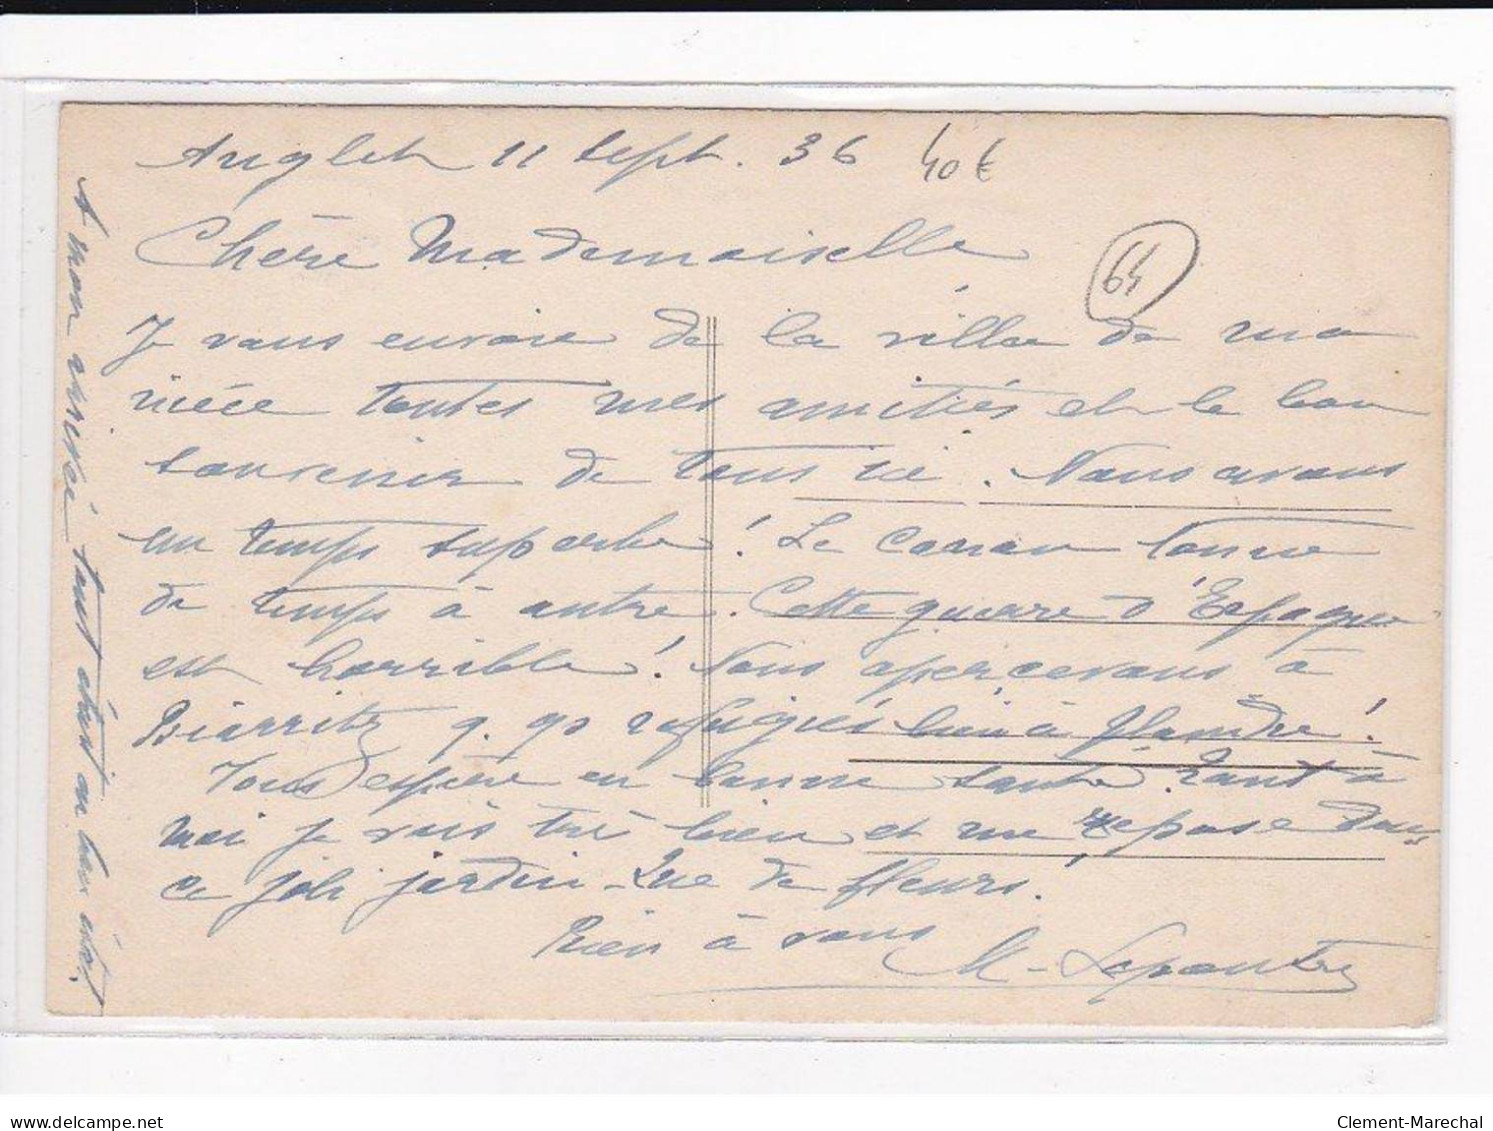 Anglet 11 Sept. 36
40€
64
Chère Mademoiselle
Je vous envoie de la villa de ma
nièce toutes mes amitiés et le bon
souvenir de tous ici. Nous avons
un temps superbe! Le canon tonne
de temps à autre. Cette guerre d'Espagne
est horrible! Nous apercevons à
Biarritz q. qs réfugiés bien à plaindre!
Vous espère en bonne santé. Quant à
moi je vais très bien et me repose dans
ce joli jardin. Que de fleurs!
Bien à vous
M. Lepoutre
A mon arrivée tout était en bon état!
delcampe.net
Clement-Marechal